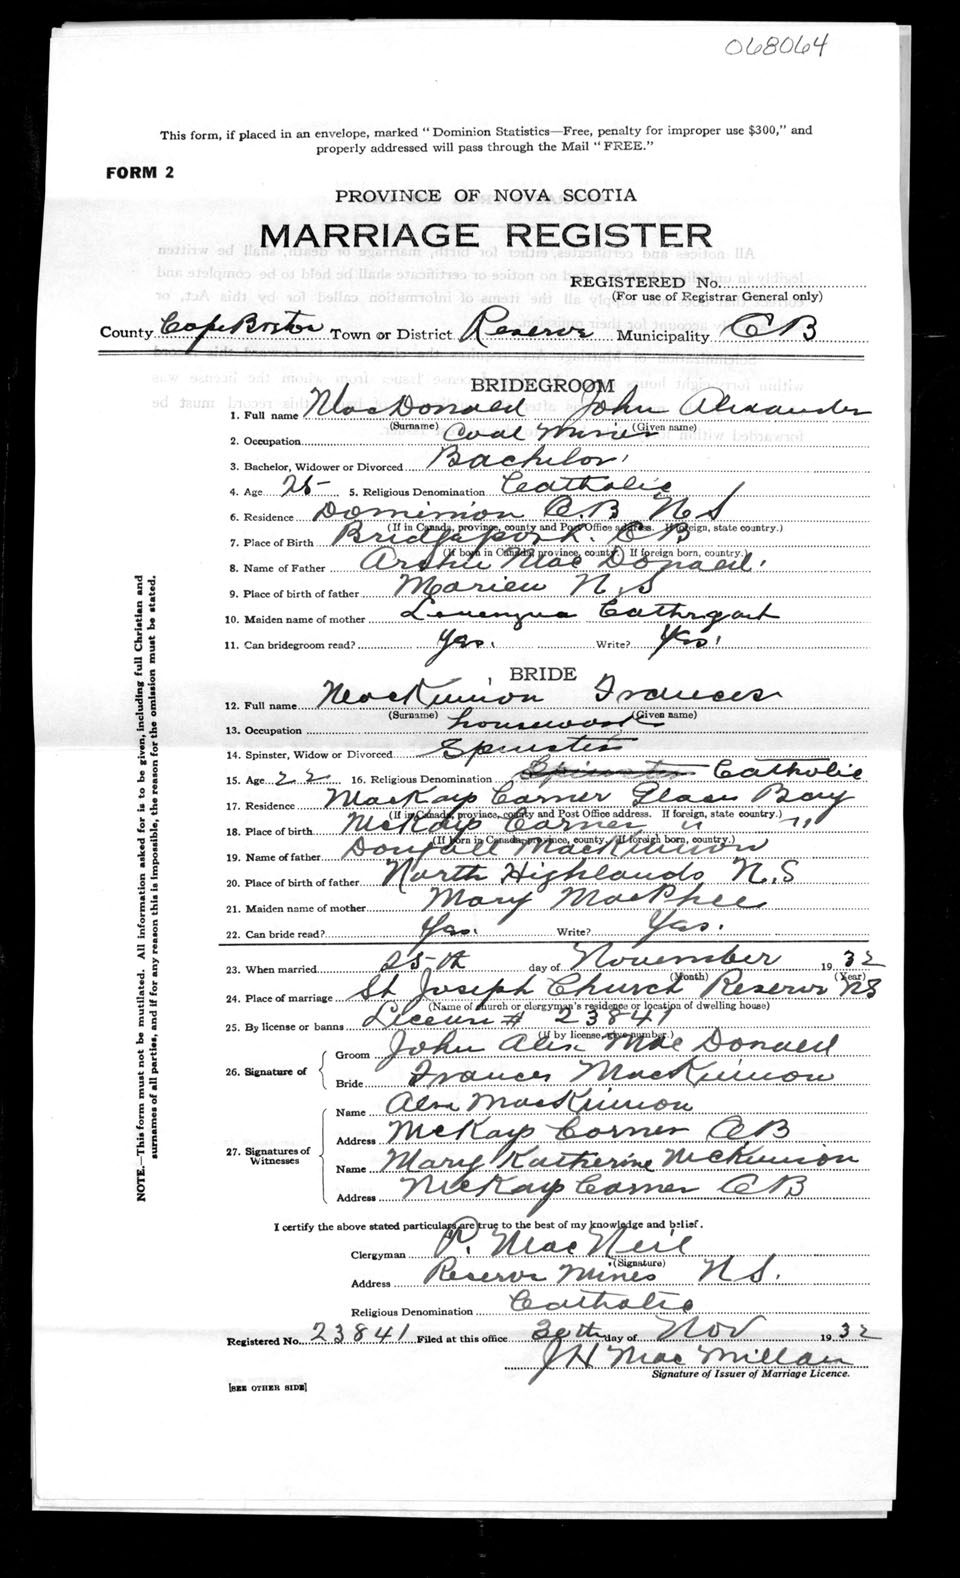 068064
This form, if placed in an envelope, marked "Dominion Statistics—Free, penalty for improper use $300," and
properly addressed will pass through the Mail "FREE."
FORM 2
PROVINCE OF NOVA SCOTIA
MARRIAGE REGISTER
REGISTERED No.
(For use of Registrar General only)
County Cape Breton Town or District Reserve Municipality CB
BRIDEGROOM
1. Full name MacDonald John Alexander
(Surname) (Given name)
2. Occupation Coal Miner
3. Bachelor, Widower or Divorced Bachelor
4. Age 25 5. Religious Denomination Catholic
6. Residence Dominion C.B N S
(If in Canada, province, county and Post Office address. If foreign, state country.)
7. Place of Birth Bridgeport. CB
(If born in Canada, province, county. If foreign born, country.)
8. Name of Father Archie MacDonald
9. Place of birth of father N.S
10. Maiden name of mother
11. Can bridegroom read? Yes. Write? Yes.
BRIDE
12. Full name MacKinnon Frances
(Surname) (Given name)
13. Occupation housework
14. Spinster, Widow or Divorced Spinster
15. Age 22 16. Religious Denomination Spinster Catholic
17. Residence MacKays Corner Glace Bay
(If in Canada, province, county and Post Office address. If foreign, state country.)
18. Place of birth McKays Corner " "
(If born in Canada, province, county. If foreign born, country.)
19. Name of father MacKinnon
20. Place of birth of father North Highlands N.S
21. Maiden name of mother Mary MacPhee
22. Can bride read? Yes. Write? Yes.
23. When married 25th day of November 1932
(Month) (Year)
24. Place of marriage St Joseph Church Reserve NS
(Name of church or clergyman's residence or location of dwelling house)
25. By license or banns License # 23841
(If by license, give number.)
26. Signature of
Groom John Alex MacDonald
Bride Frances MacKinnon
27. Signatures of Witnesses
Name MacKinnon
Address McKays Corner CB
Name Mary Katherine McKinnon
Address McKays Corner CB
I certify the above stated particulars are true to the best of my knowledge and belief.
Clergyman P. MacNeil
(Signature)
Address Reserve Mines N S.
Religious Denomination Catholic
Registered No. 23841 Filed at this office 30th day of Nov 1932
J H MacMillan
Signature of Issuer of Marriage Licence.
[SEE OTHER SIDE]
NOTE.—This form must not be mutilated. All information asked for is to be given, including full Christian and
surnames of all parties, and if for any reason this is impossible, the reason for the omission must be stated.